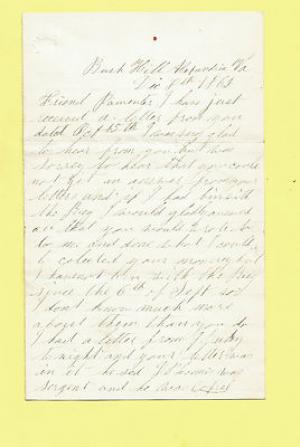 Bush Hill Alexandria Va
Dec 8th 1863
Friend Parmenter I have just
received a letter from you
dated Oct 15th I was very glad
to hear from you but was
sorrey to hear that you could
not get an answer from your
letters and if I had bin with
the Reg I would gladly answerd
all that you would wrote
to me and done what I could
to colected your money but
I havent bin with the Reg
since the 6th of Sept so
I dont know much more
about them than you do
I had a letter from
to night and your letter was
in it he sed was
sergent and he was